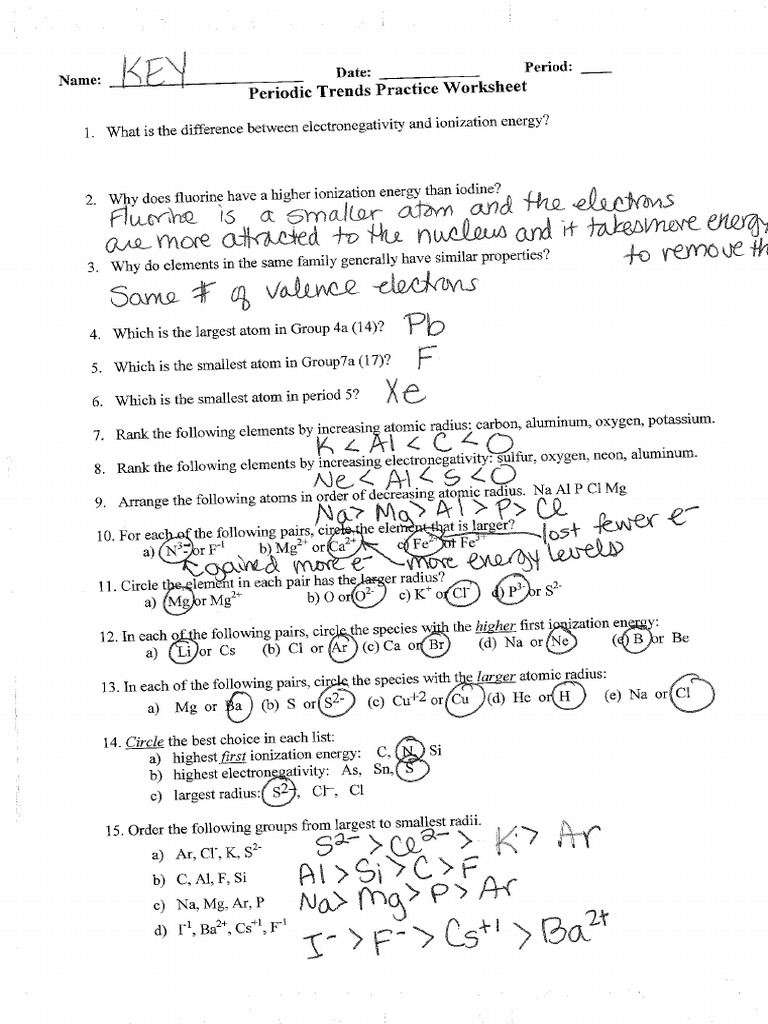 Name: KEY Date: ____________ Period: ____
Periodic Trends Practice Worksheet
1. What is the difference between electronegativity and ionization energy?
2. Why does fluorine have a higher ionization energy than iodine?
Fluorine is a smaller atom and the electrons
are more attracted to the nucleus and it takes more energy
to remove th
3. Why do elements in the same family generally have similar properties?
Same # of valence electrons
4. Which is the largest atom in Group 4a (14)? Pb
5. Which is the smallest atom in Group7a (17)? F
6. Which is the smallest atom in period 5? Xe
7. Rank the following elements by increasing atomic radius: carbon, aluminum, oxygen, potassium.
K < Al < C < O
8. Rank the following elements by increasing electronegativity: sulfur, oxygen, neon, aluminum.
Ne < Al < S < O
9. Arrange the following atoms in order of decreasing atomic radius. Na Al P Cl Mg
Na > Mg > Al > P > Cl
10. For each of the following pairs, circle the element that is larger? lost fewer e-
a) N³⁻ or F⁻¹ b) Mg²⁺ or Ca²⁺ c) Fe²⁺ or Fe³⁺
gained more e- more energy levels
11. Circle the element in each pair has the larger radius?
a) Mg or Mg²⁺ b) O or O²⁻ c) K⁺ or Cl⁻ d) P³⁻ or S²⁻
12. In each of the following pairs, circle the species with the higher first ionization energy:
a) Li or Cs (b) Cl or Ar (c) Ca or Br (d) Na or Ne (e) B or Be
13. In each of the following pairs, circle the species with the larger atomic radius:
a) Mg or Ba (b) S or S²⁻ (c) Cu⁺² or Cu (d) He or H (e) Na or Cl
14. Circle the best choice in each list:
a) highest first ionization energy: C, N, Si
b) highest electronegativity: As, Sn, S
c) largest radius: S²⁻, Cl⁻, Cl
15. Order the following groups from largest to smallest radii.
a) Ar, Cl⁻, K, S²⁻ S²⁻ > Cl²⁻ > K > Ar
b) C, Al, F, Si Al > Si > C > F
c) Na, Mg, Ar, P Na > Mg > P > Ar
d) I⁻¹, Ba²⁺, Cs⁺¹, F⁻¹ I⁻ > F⁻ > Cs⁺¹ > Ba²⁺